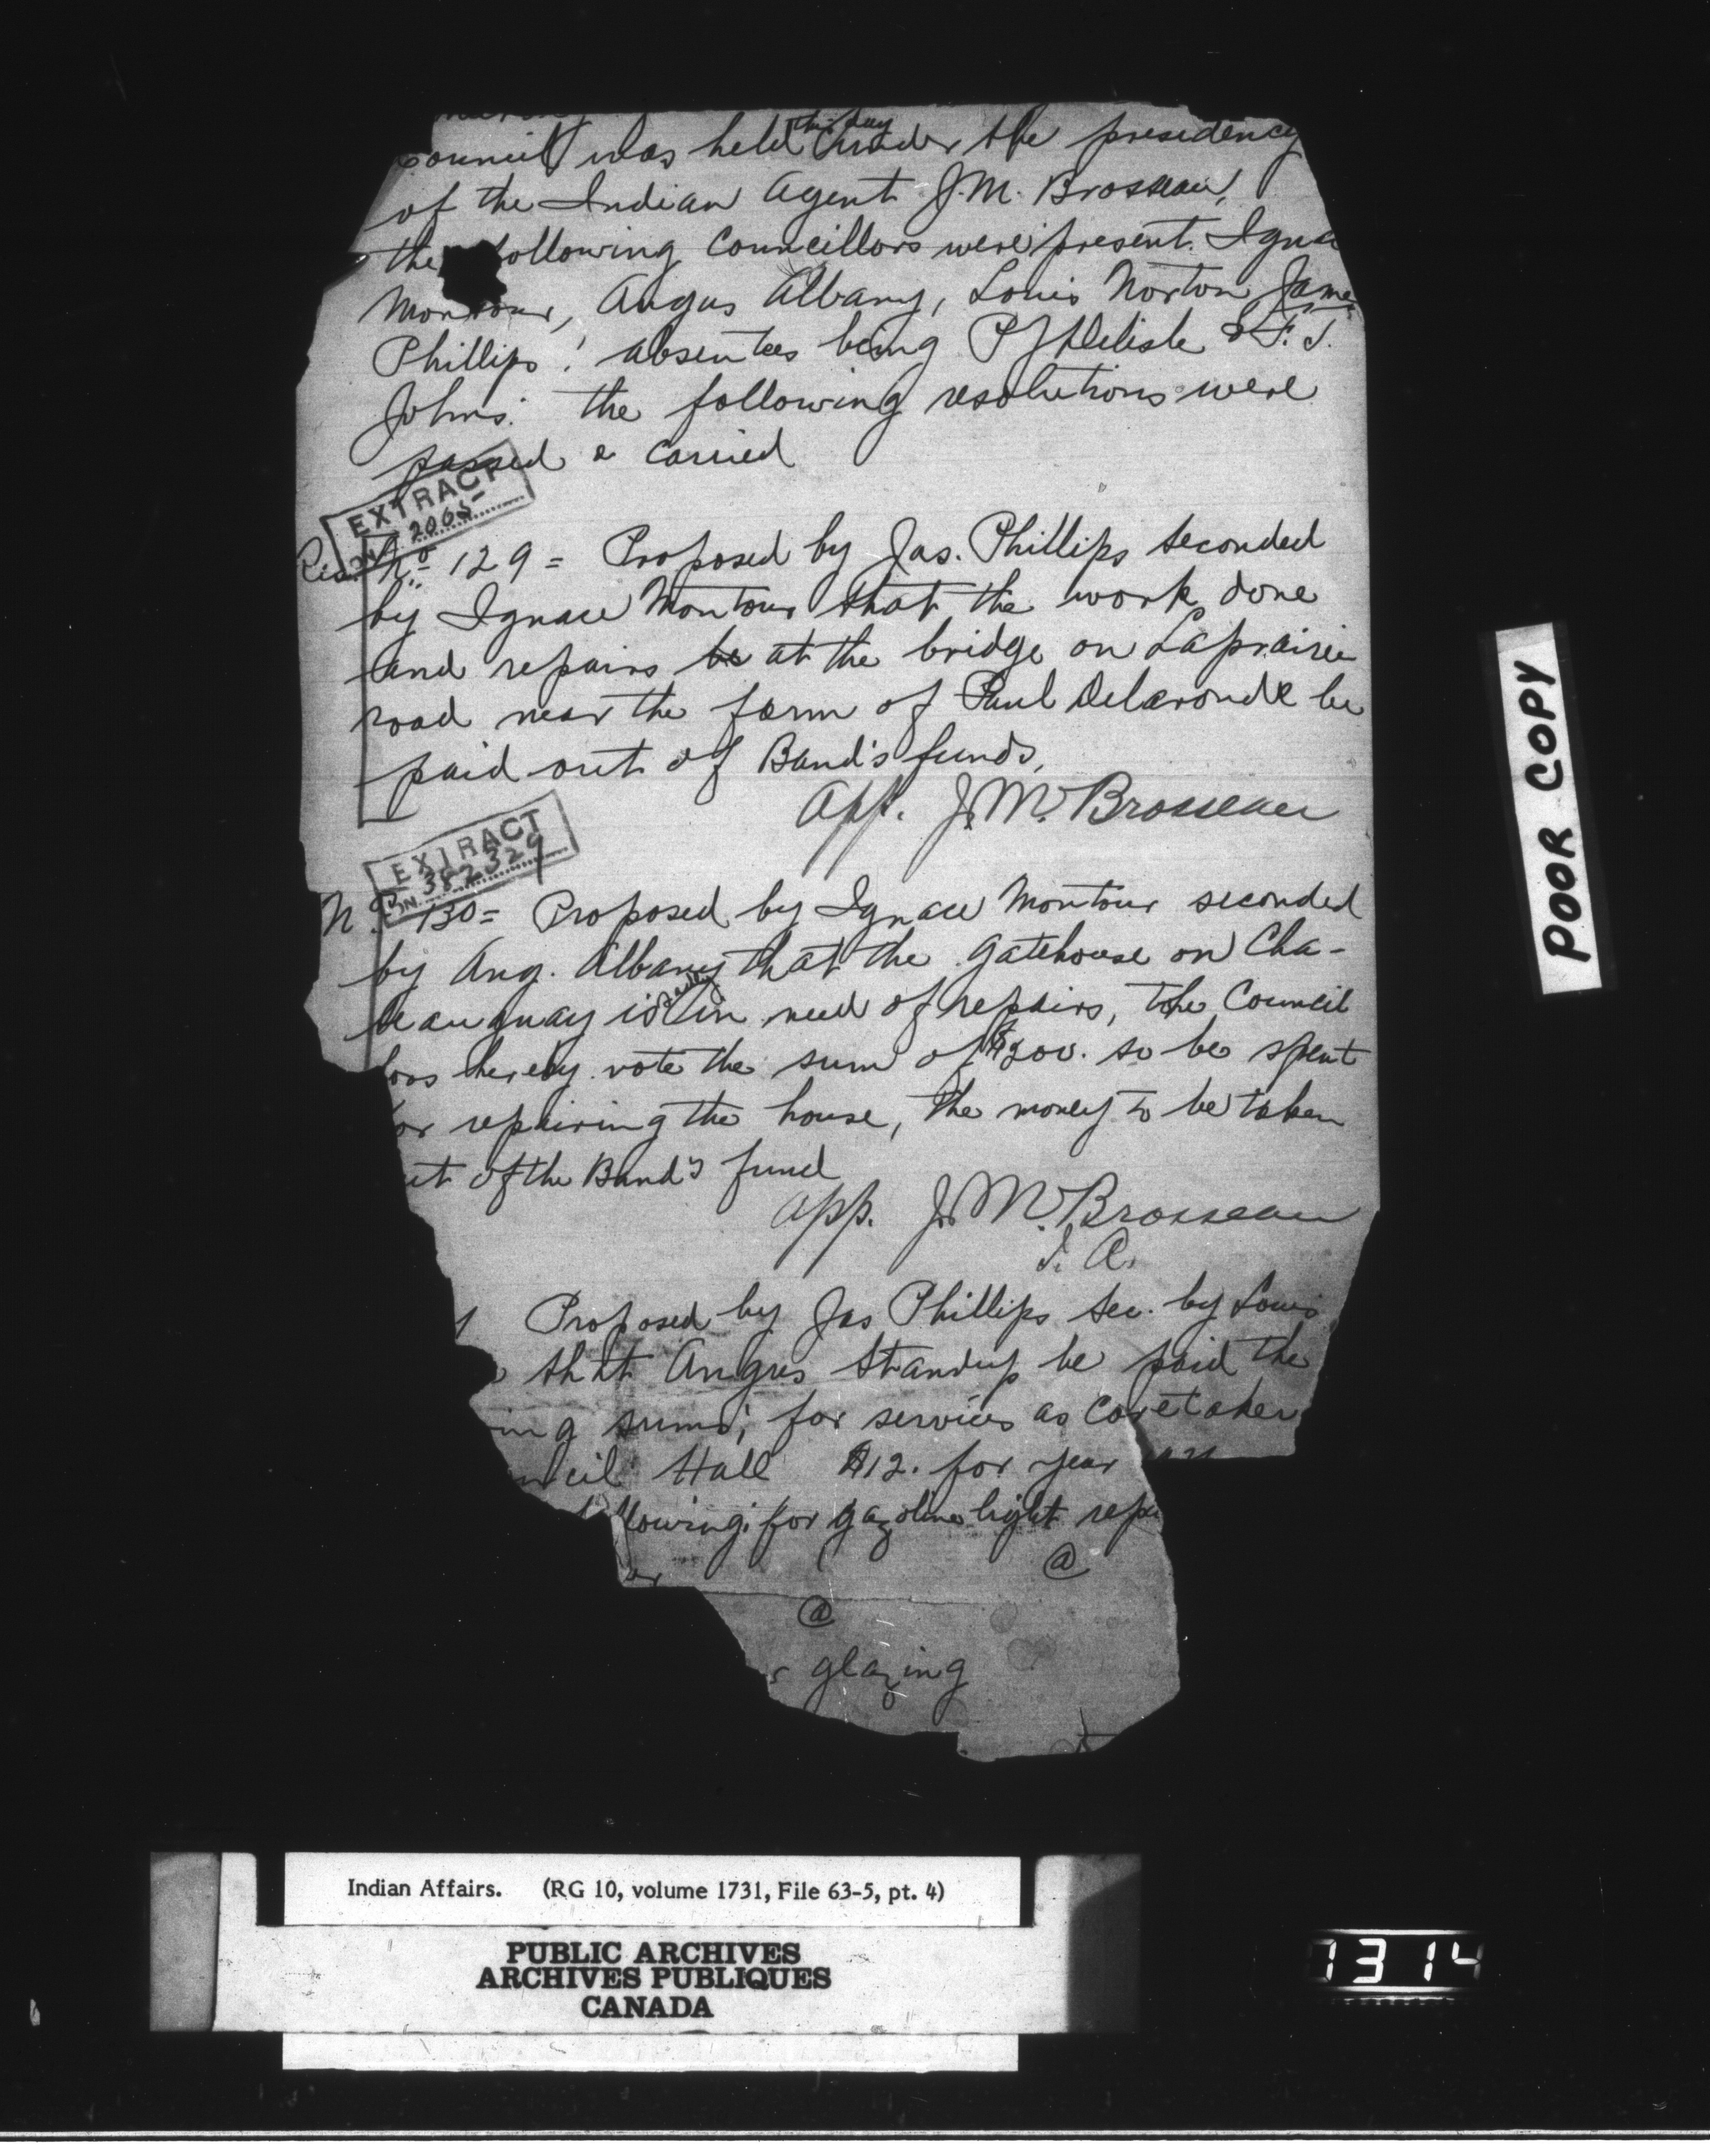 council was held this day under the presidency
of the Indian Agent J.M. Brosseau,
the following Councillors were present. Igna
Montour, Angus Albany, Louis Norton James
Phillips; absentees being P J Delisle & F. J.
Johns. the following resolutions were
passed & carried
EXTRACT
ON 2065-
Res. No 129 = Proposed by Jas. Phillips seconded
by Ignace Montour that the work done
and repairs be at the bridge on Laprairie
road near the farm of Paul Delaronde be
paid out of Band's funds,
App. J. M. Brosseau
EXTRACT
ON 382329
No 130 = Proposed by Ignace Montour seconded
by Ang. Albany that the gatehouse on Cha-
teauguay is in need of repairs, the Council
does hereby vote the sum of $200. to be spent
for repairing the house, the money to be taken
ut of the Band's fund
App. J. M. Brosseau
I. A.
1 Proposed by Jas Phillips sec. by Louis
that Angus Standup be paid the
ing sums; for services as caretaker
ncil Hall $12. for year
llowing: for gazoline light repa
@
@
glazing
POOR COPY
Indian Affairs. (RG 10, volume 1731, File 63-5, pt. 4)
PUBLIC ARCHIVES
ARCHIVES PUBLIQUES
CANADA
1314